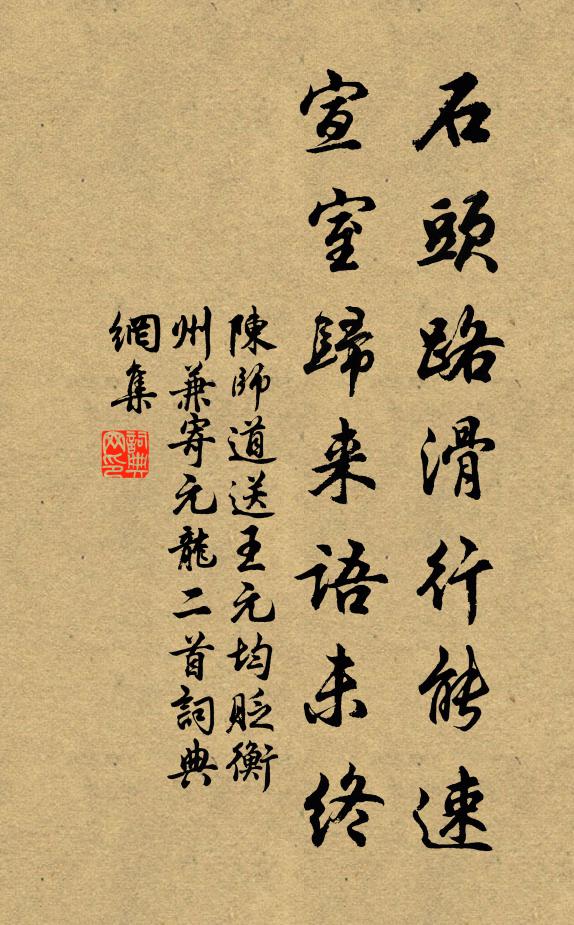 石頭路滑行能速
宣室歸来語未終
陳師道送王元均貶衡
州兼寄元龍二首詞典
網集
詞典
网印